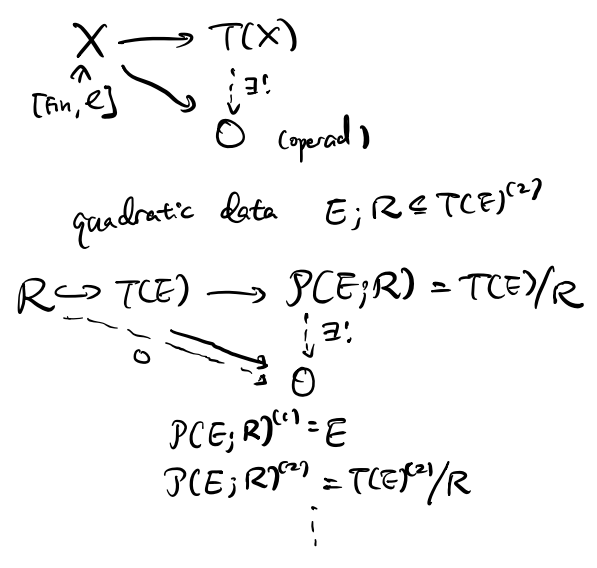 X → T(X)
[Fin, C]
∃!
O (operad)
quadratic data E; R ⊆ T(E)^(2)
R ↪ T(E) → P(E;R) = T(E)/R
0 ∃!
O
P(E; R)^(1) = E
P(E; R)^(2) = T(E)^(2)/R
⋮